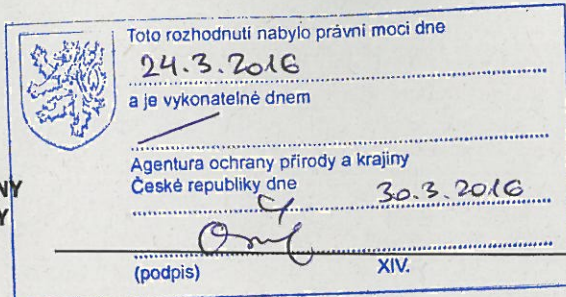 Toto rozhodnutí nabylo právní moci dne
24.3.2016
a je vykonatelné dnem
Agentura ochrany přírody a krajiny
České republiky dne 30.3.2016
NY
Y
(podpis) XIV.